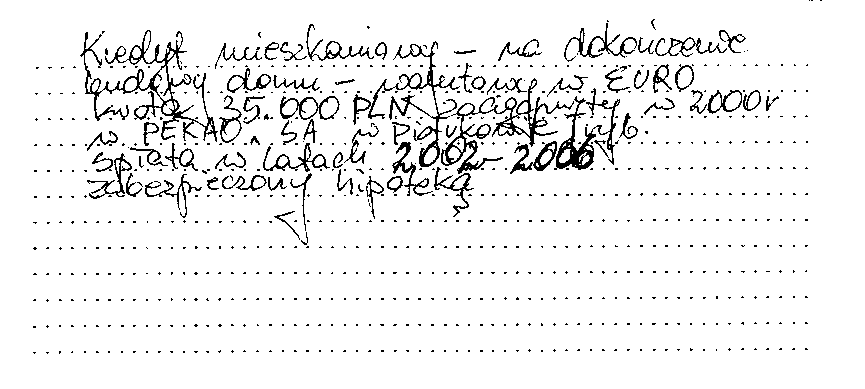 Kredyt mieszkaniowy – na dokończenie
budowy domu – walutowy w EURO
kwota 35.000 PLN zaciągnięty w 2000r
w PEKAO SA w Piotrkowie Tryb.
spłata w latach 2002 – 2006
zabezpieczony hipoteką